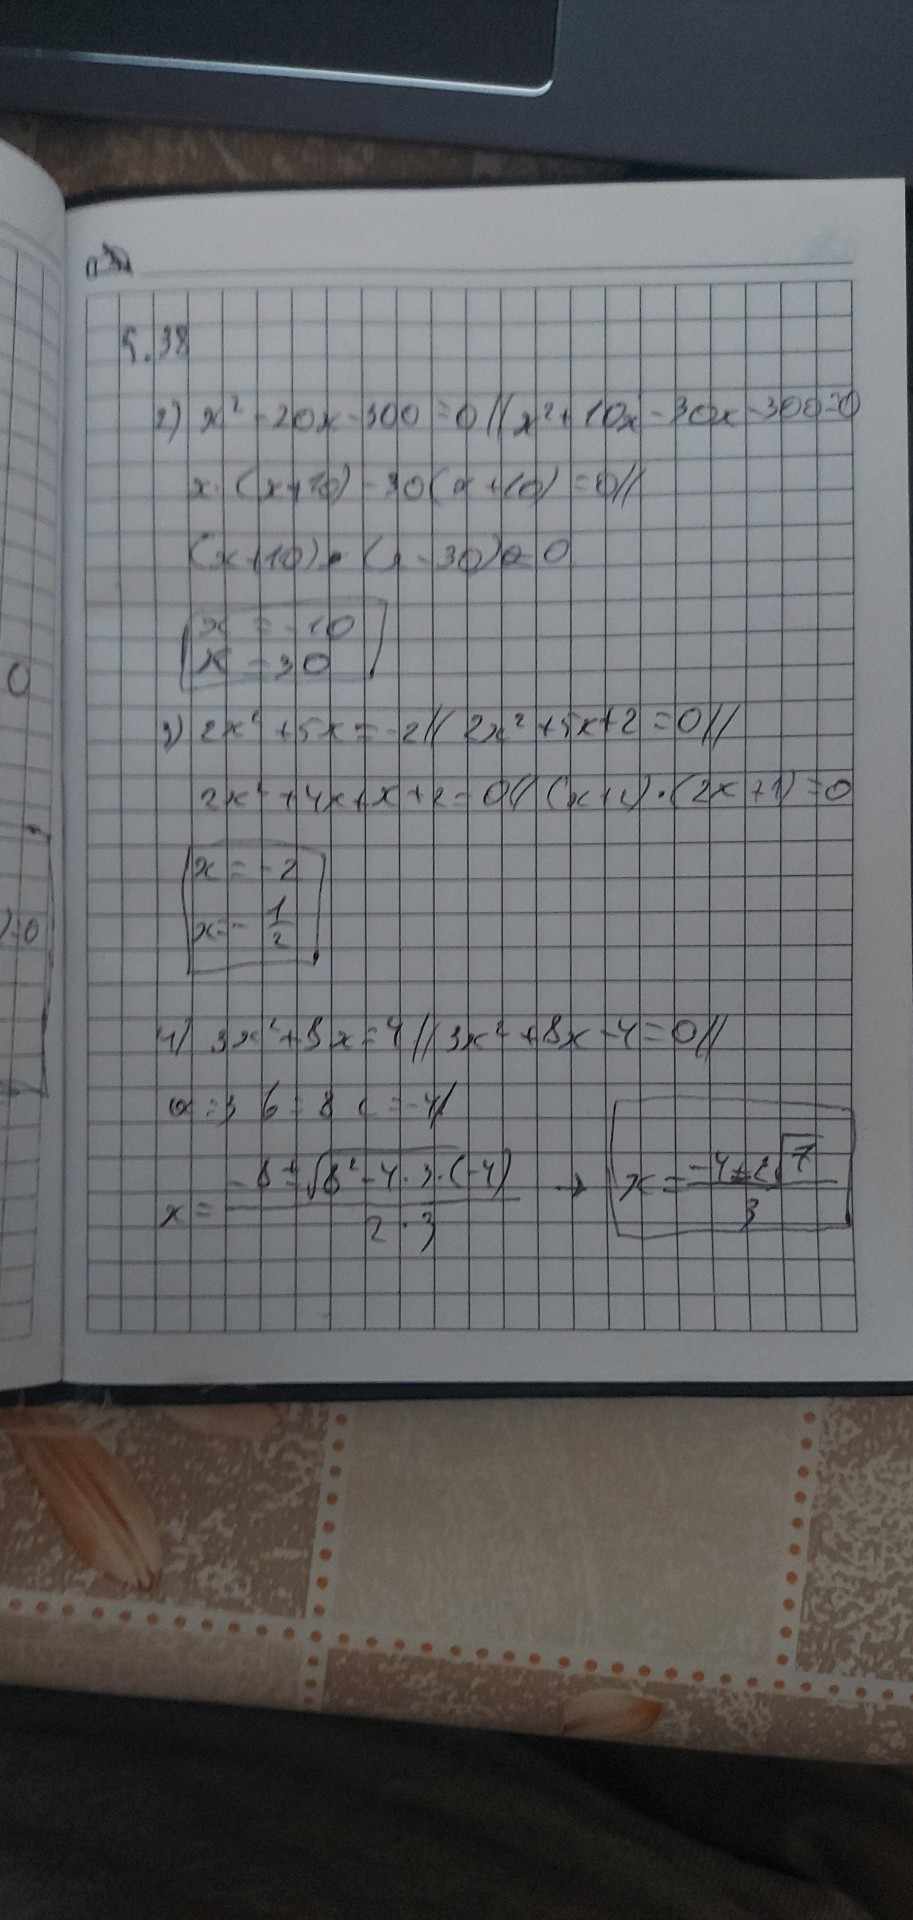 5.38
2) x² - 20x - 300 = 0 // x² + 10x - 30x - 300 = 0
x · (x+10) - 30(x+10) = 0 //
(x+10) · (x - 30) = 0
x = -10
x = 30
3) 2x² + 5x = -2 // 2x² + 5x + 2 = 0 //
2x² + 4x + x + 2 = 0 // (x+2) · (2x+1) = 0
x = -2
x = - 1/2
4) 3x² + 8x = 4 // 3x² + 8x - 4 = 0 //
a = 3 b = 8 c = -4 //
x = (-8 ± √(8² - 4 · 3 · (-4))) / (2 · 3) → x = (-4 ± 2√7) / 3
0
)=0